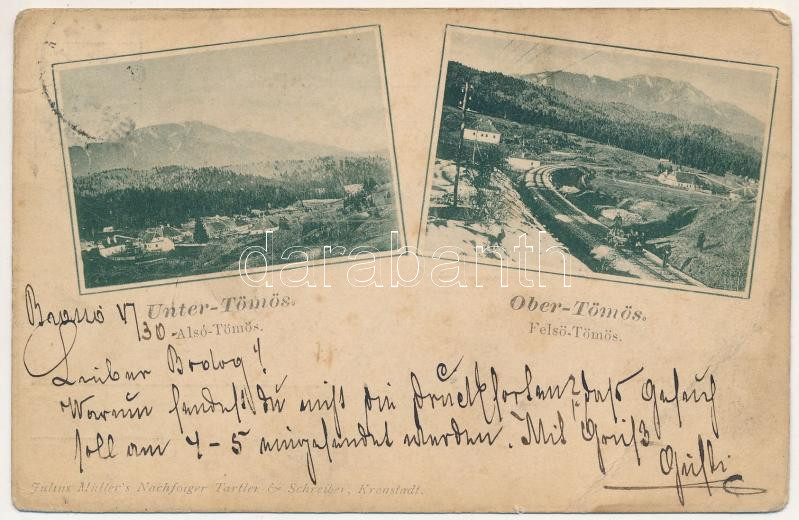 Unter-Tömös.
Alsó-Tömös.
Ober-Tömös.
Felsö-Tömös.
darabanth
V/30
Lieber Bodog!
Warum sendest du nicht die Drucksorten? das Gesuch
soll am 4-5 eingesendet werden. Mit Gruß
Julius Müller's Nachfolger Tartler & Schreiber, Kronstadt.